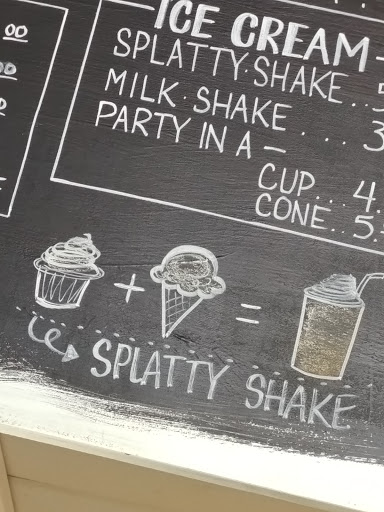 ICE CREAM
SPLATTY·SHAKE..5
MILK·SHAKE ....3
PARTY IN A —
CUP...4.
CONE..5.
00
00
+ =
SPLATTY SHAKE